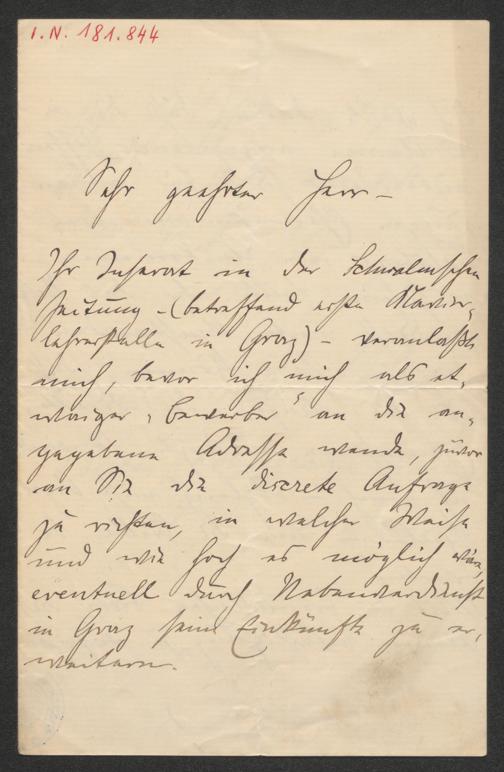 I. N. 181.844
Sehr geehrter Herr –
Ihr Inserat in der Schwalmschen
Zeitung – (betreffend erste Klavier-
lehrerstelle in Graz) – veranlaßt
mich, bevor ich mich als et-
waiger „Bewerber“ an die an-
gegebene Adresse wende, zuvor
an Sie die discrete Anfrage
zu richten, in welcher Weise
und wie hoch es möglich wäre,
eventuell durch Nebenverdienst
in Graz seine Einkünfte zu er-
weitern.